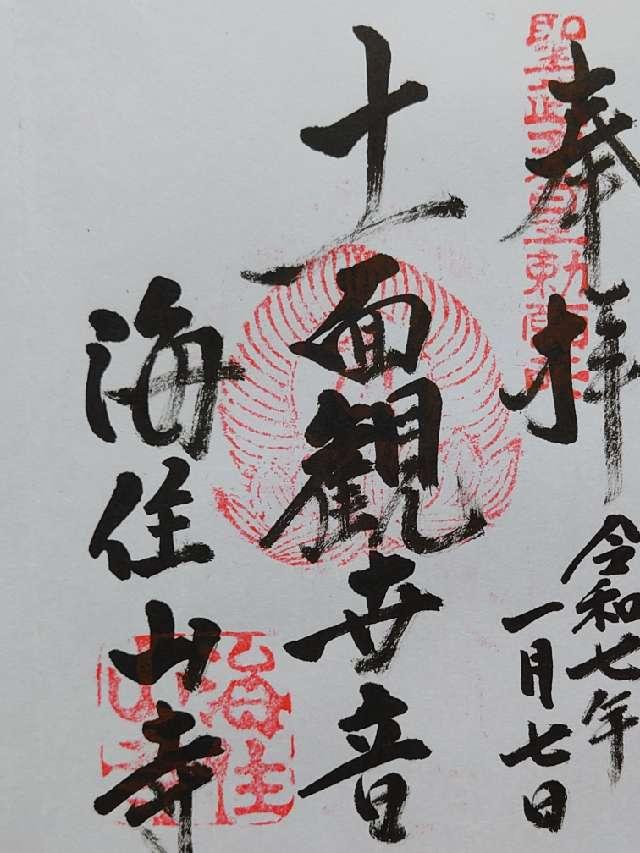 奉拝
令和七年
一月七日
十一面観世音
海住山寺
海住
山寺